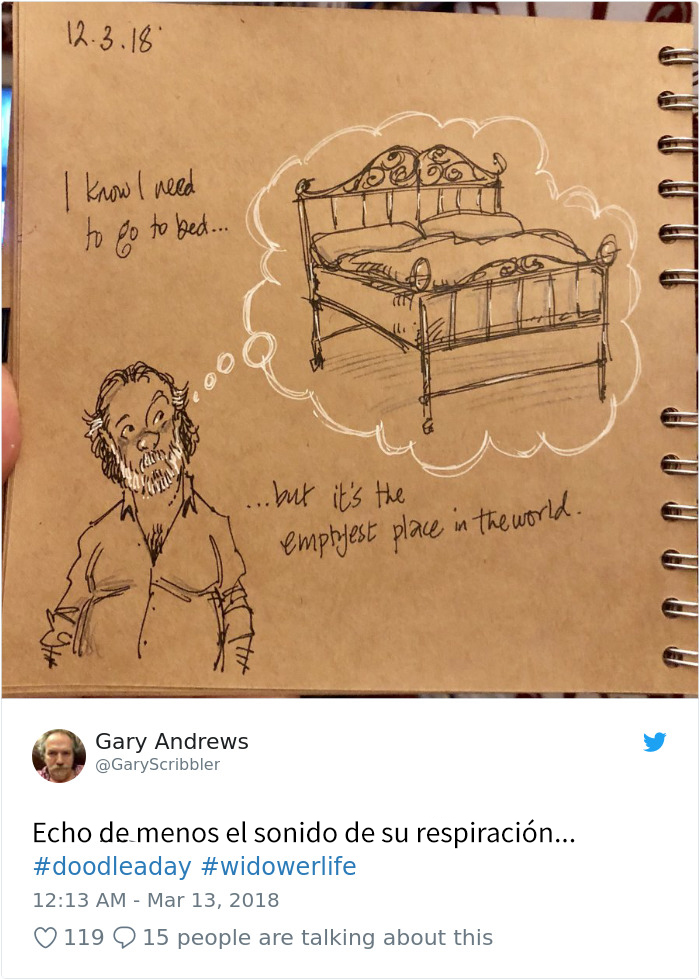 12.3.18
I know I need
to go to bed...
...but it's the
emptyest place in the world.
Gary Andrews
@GaryScribbler
Echo de menos el sonido de su respiración...
#doodleaday #widowerlife
12:13 AM - Mar 13, 2018
119 15 people are talking about this